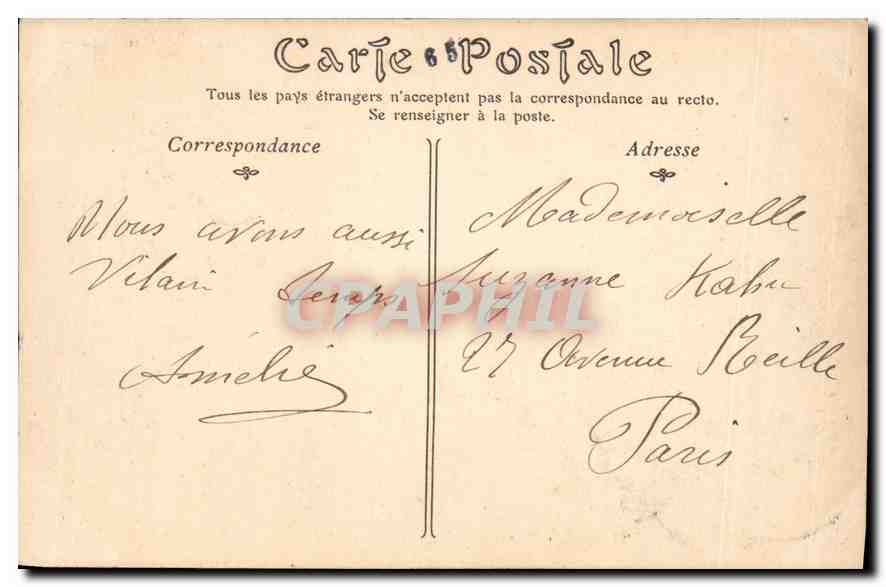 Carte Postale
65
Tous les pays étrangers n'acceptent pas la correspondance au recto.
Se renseigner à la poste.
Correspondance
Nous avons aussi
Vilain temps
Amélie
Adresse
Mademoiselle
Suzanne Kahn
27 Avenue Reille
Paris
CPAPHIL